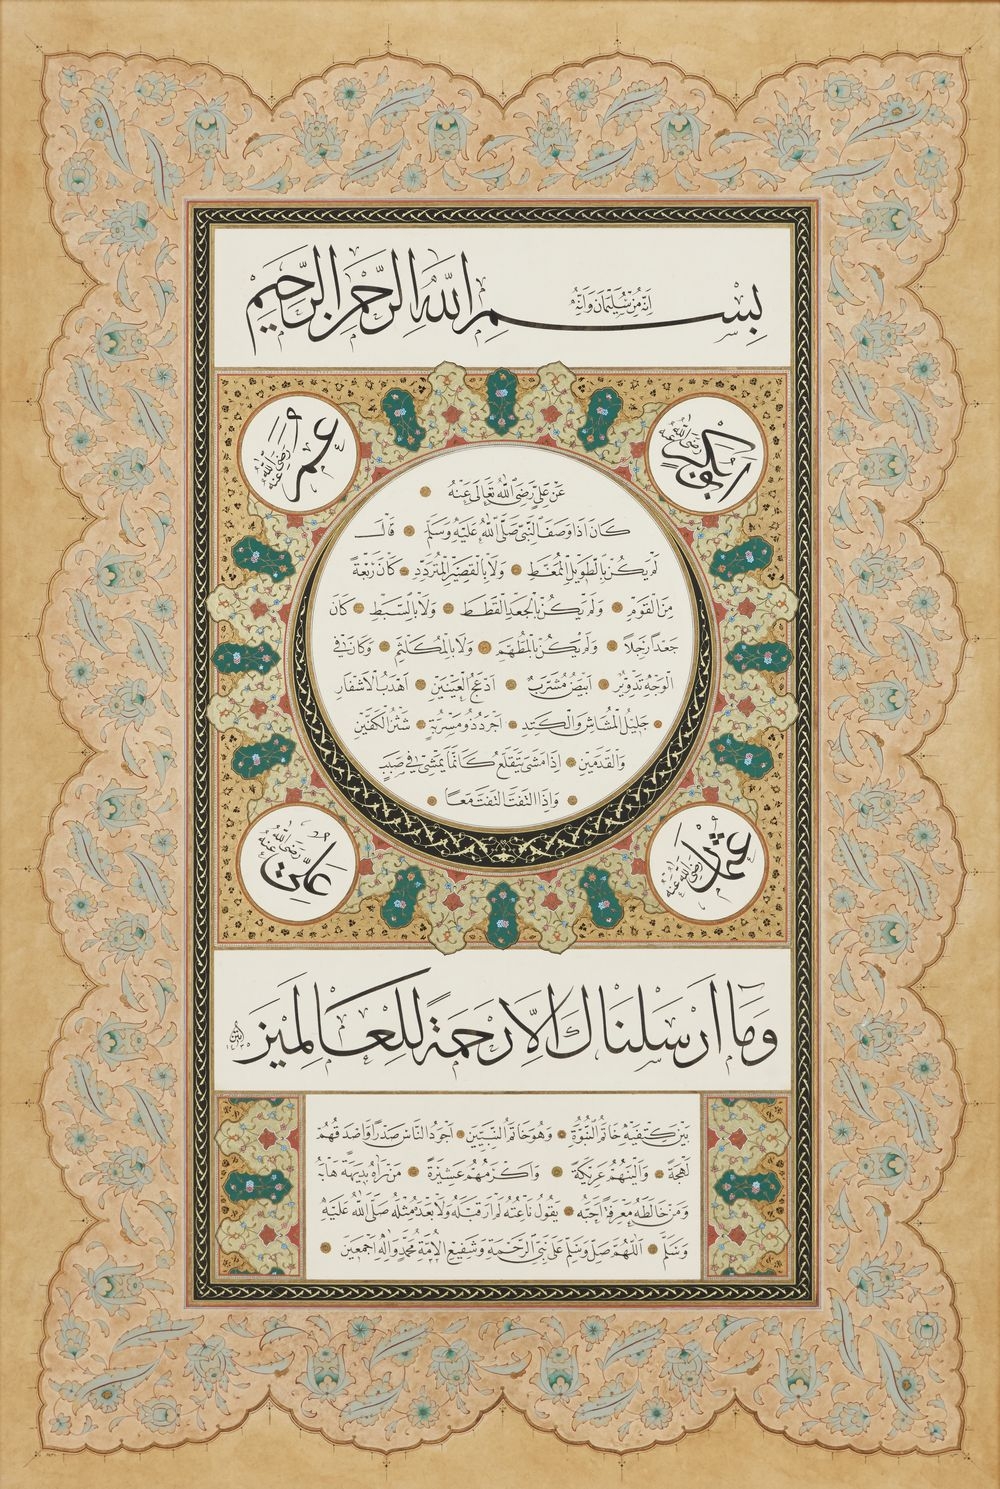 إنه من سليمان وإنه
بسم الله الرحمن الرحيم
ابو بكر رضى الله عنه
عمر رضى الله عنه
عن علي رضي الله تعالى عنه
كان اذا وصف النبي صلى الله عليه وسلم قال
لم يكن بالطويل الممغط ولا بالقصير المتردد كان ربعة
من القوم ولم يكن بالجعد القطط ولا بالسبط كان
جعدا رجلا ولم يكن بالمطهم ولا بالمكلثم وكان في
الوجه تدوير ابيض مشرب ادعج العينين اهدب الاشفار
جليل المشاش والكتد اجرد ذو مسربة شثن الكفين
والقدمين اذا مشى يتقلع كانما يمشي في صبب
واذا التفت التفت معا
عثمان رضى الله عنه
علي رضى الله عنه
وما ارسلناك الا رحمة للعالمين
بين كتفيه خاتم النبوة وهو خاتم النبيين اجود الناس صدرا واصدقهم
لهجة والينهم عريكة واكرمهم عشيرة من رآه بديهة هابه
ومن خالطه معرفة احبه يقول ناعته لم ار قبله ولا بعده مثله صلى الله عليه
وسلم اللهم صل وسلم على نبي الرحمة وشفيع الامة محمد وآله اجمعين